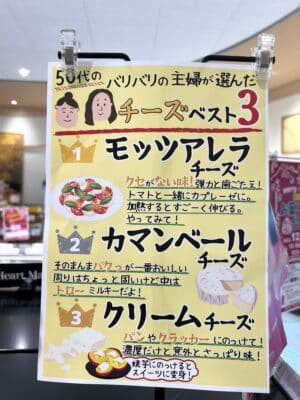 50代の バリバリの主婦が選んだ
チーズベスト3
1 モッツアレラ
チーズ
クセがない味！弾力と歯ごたえ！
トマトと一緒にカプレーゼに。
加熱するとすごーく伸びる。
やってみて！
2 カマンベール
チーズ
そのまんまパクっが一番おいしい
周りはちょっと固いけど中は
トロ〜 ミルキーだよ！
3 クリームチーズ
パンやクラッカーにのっけて！
濃厚だけど意外とさっぱり味！
焼芋にのっけると
スイーツに変身！
Heart